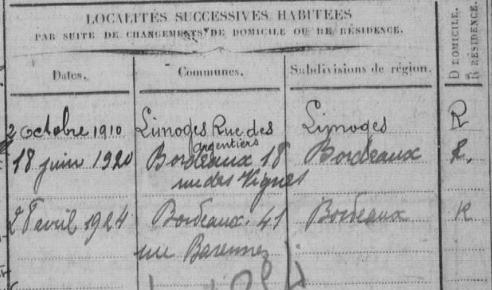 LOCALITÉS SUCCESSIVES HABITÉES
PAR SUITE DE CHANGEMENTS DE DOMICILE OU DE RÉSIDENCE.
D DOMICILE.
R RÉSIDENCE.
Dates. Communes. Subdivisions de région.
2 octobre 1910 Limoges Rue des Limoges R
Argentiers
18 juin 1920 Bordeaux 18 Bordeaux R.
rue des Vignes
avril 1924 Bordeaux. 41 Bordeaux R
rue